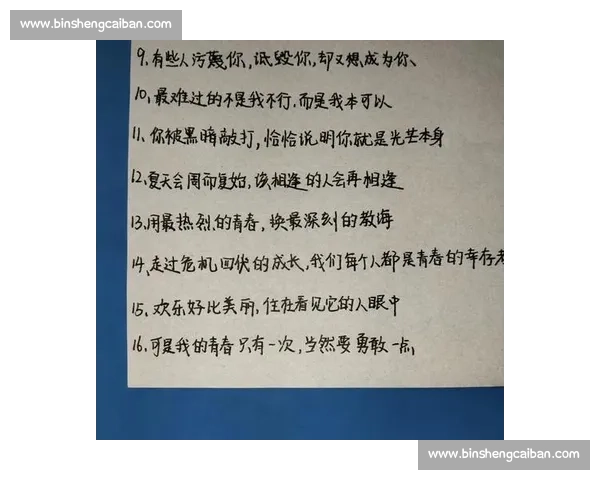 www.binshengcaiban.com
9、有些人污蔑你,诋毁你,却又想成为你、
10、最难过的不是我不行,而是我本可以
11、你被黑暗敲打,恰恰说明你就是光芒本身
12、夏天会周而复始,该相逢的人会再相逢
13、用最热烈的青春,换最深刻的教诲
14、走过危机四伏的成长,我们每个人都是青春的幸存者
15、欢乐好比美丽,住在看见它的人眼中
16、可是我的青春只有一次,当然要勇敢一点,
www.binshengcaiban.com